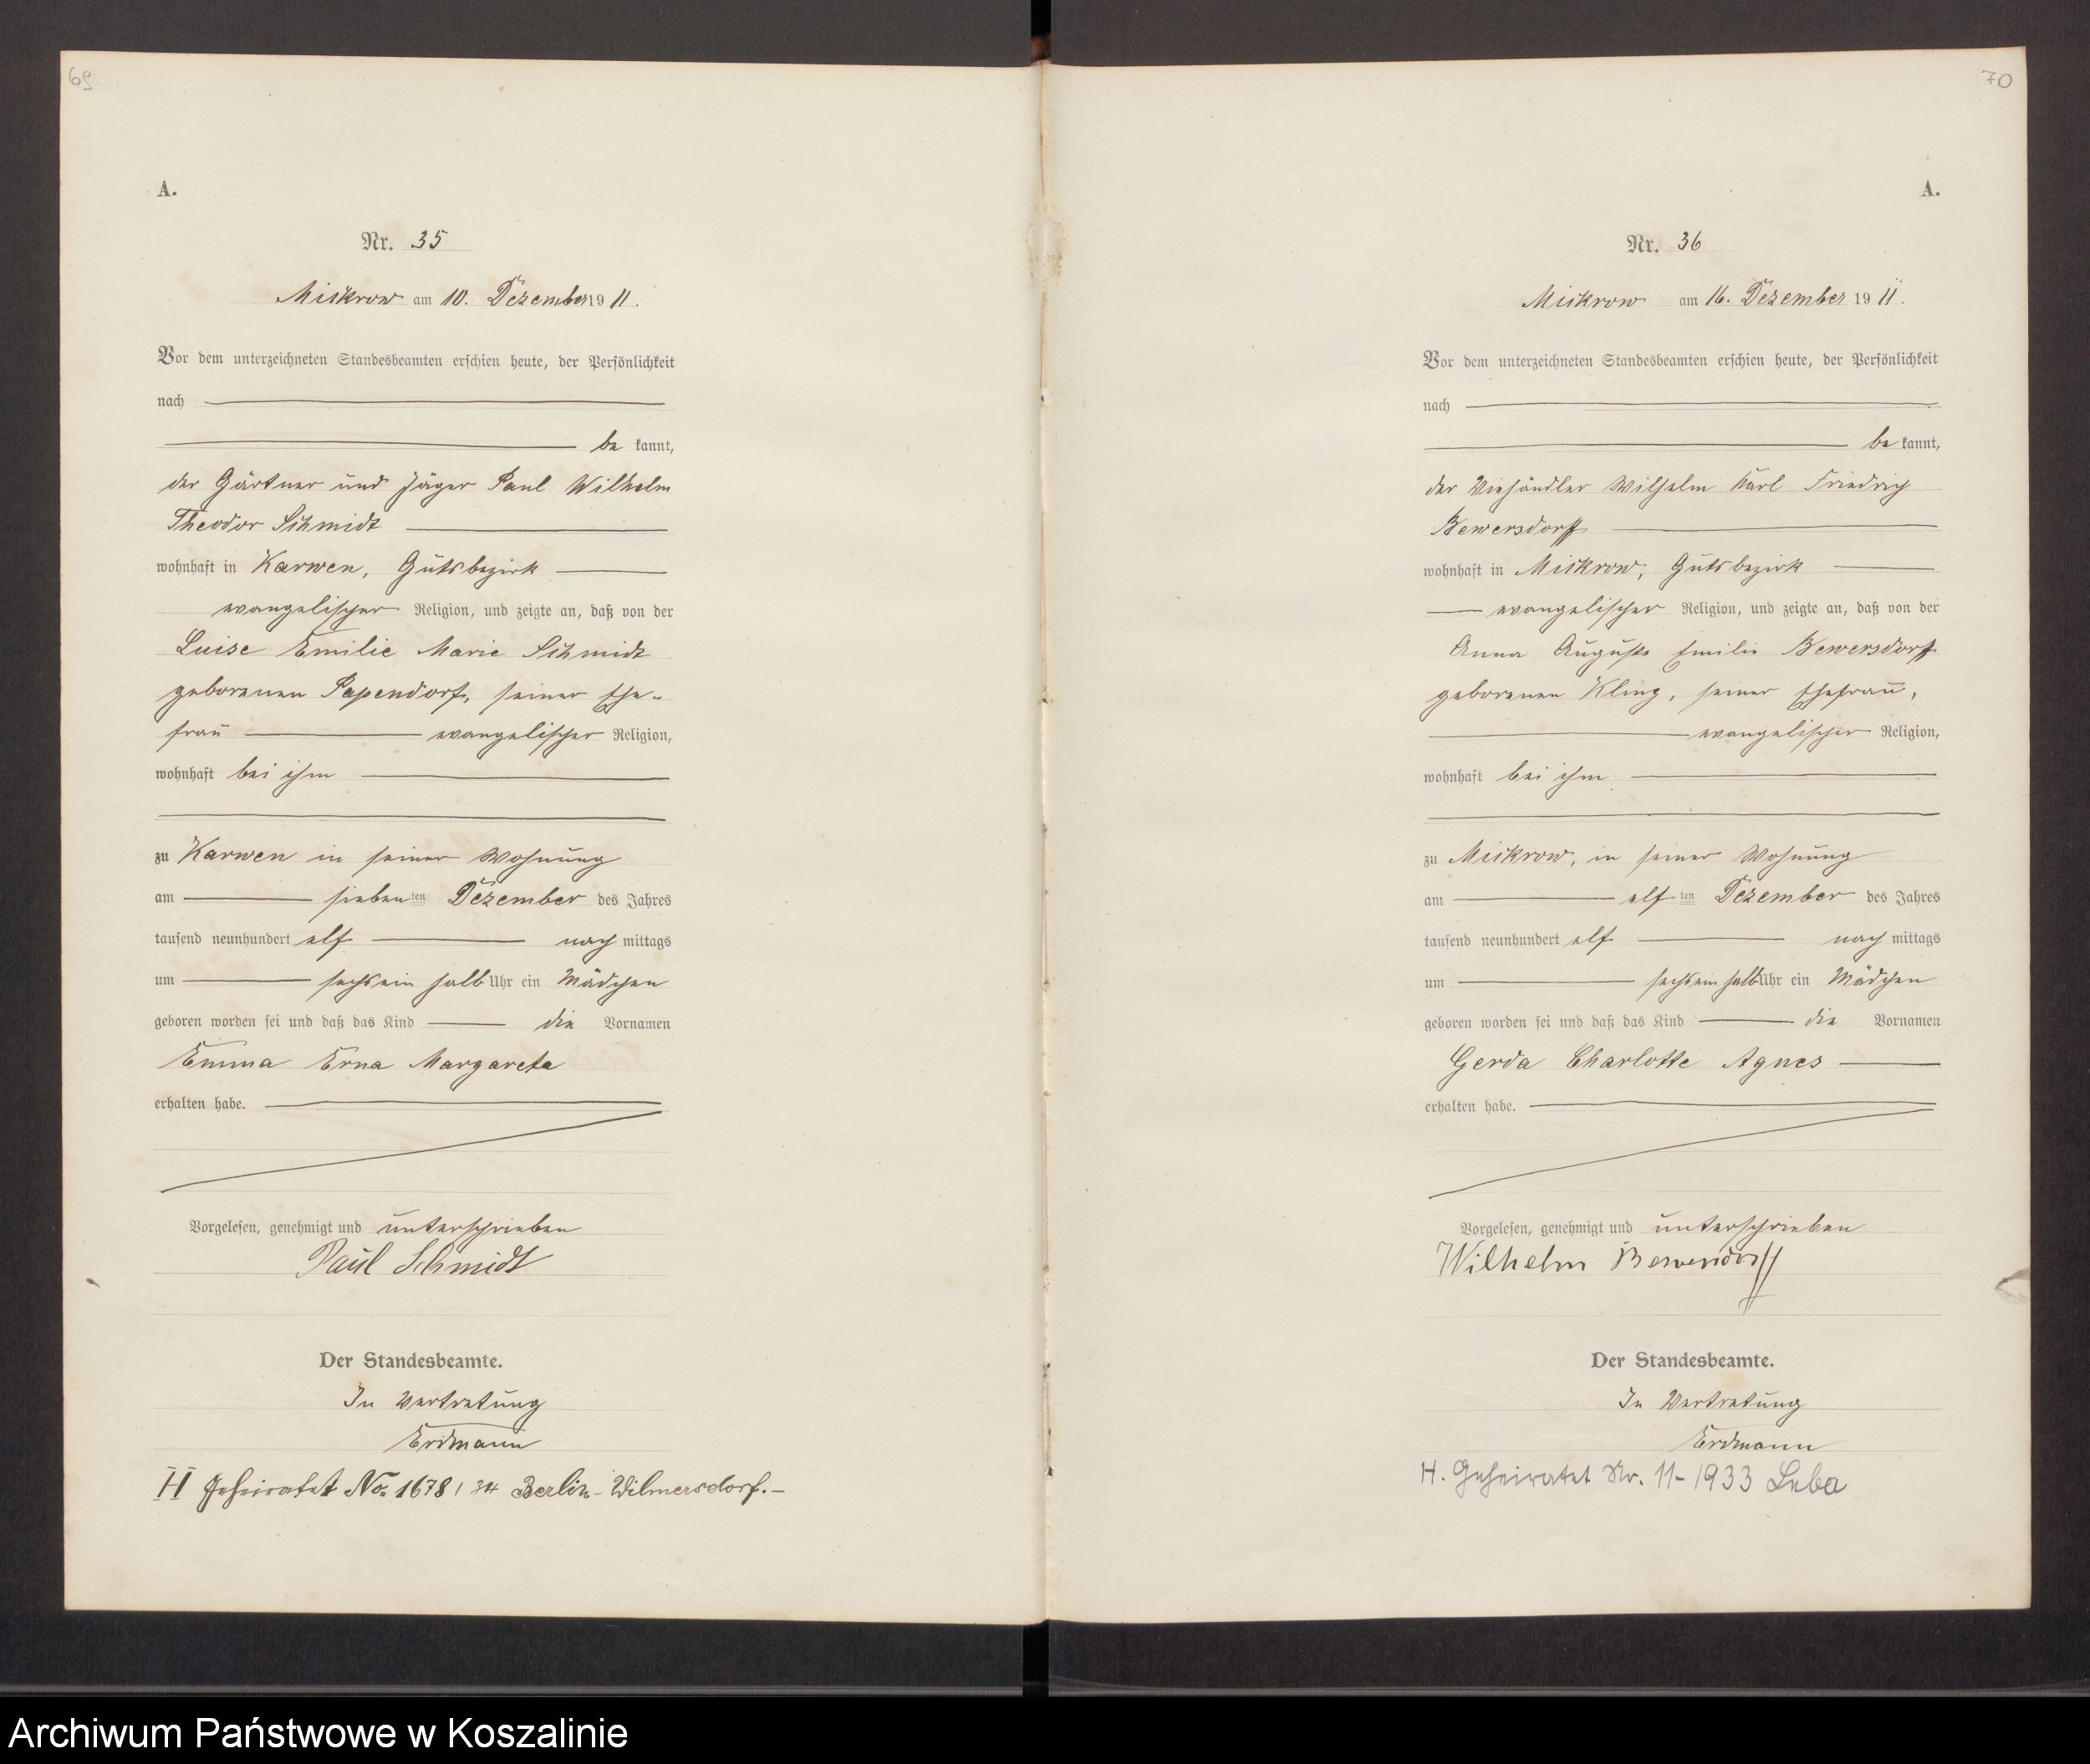 69
A.
Nr. 35
Mickrow am 10. Dezember 1911.
Vor dem unterzeichneten Standesbeamten erschien heute, der Persönlichkeit
nach
be kannt,
der Gärtner und Jäger Paul Wilhelm
Theodor Schmidt
wohnhaft in Karwen, Gutsbezirk
evangelischer Religion, und zeigte an, daß von der
Luise Emilie Marie Schmidt
geborenen Papendorf, seiner Ehe-
frau evangelischer Religion,
wohnhaft bei ihm
zu Karwen in seiner Wohnung
am siebenten Dezember des Jahres
tausend neunhundert elf nach mittags
um sechsein halb Uhr ein Mädchen
geboren worden sei und daß das Kind die Vornamen
Emma Erna Margareta
erhalten habe.
Vorgelesen, genehmigt und unterschrieben
Paul Schmidt
Der Standesbeamte.
In Vertretung
Erdmann
H Geheiratet No. 1678/34 Berlin-Wilmersdorf.-
70
A.
Nr. 36
Mickrow am 16. Dezember 1911.
Vor dem unterzeichneten Standesbeamten erschien heute, der Persönlichkeit
nach
be kannt,
der Viehändler Wilhelm Karl Friedrich
Bewersdorff
wohnhaft in Mickrow, Gutsbezirk
evangelischer Religion, und zeigte an, daß von der
Anna Auguste Emilie Bewersdorff
geborenen Kling, seiner Ehefrau,
evangelischer Religion,
wohnhaft bei ihm
zu Mickrow, in seiner Wohnung
am elften Dezember des Jahres
tausend neunhundert elf nach mittags
um sechsein halb Uhr ein Mädchen
geboren worden sei und daß das Kind die Vornamen
Gerda Charlotte Agnes
erhalten habe.
Vorgelesen, genehmigt und unterschrieben
Wilhelm Bewersdorff
Der Standesbeamte.
In Vertretung
Erdmann
H. Geheiratet Nr. 11-1933 Leba
Archiwum Państwowe w Koszalinie